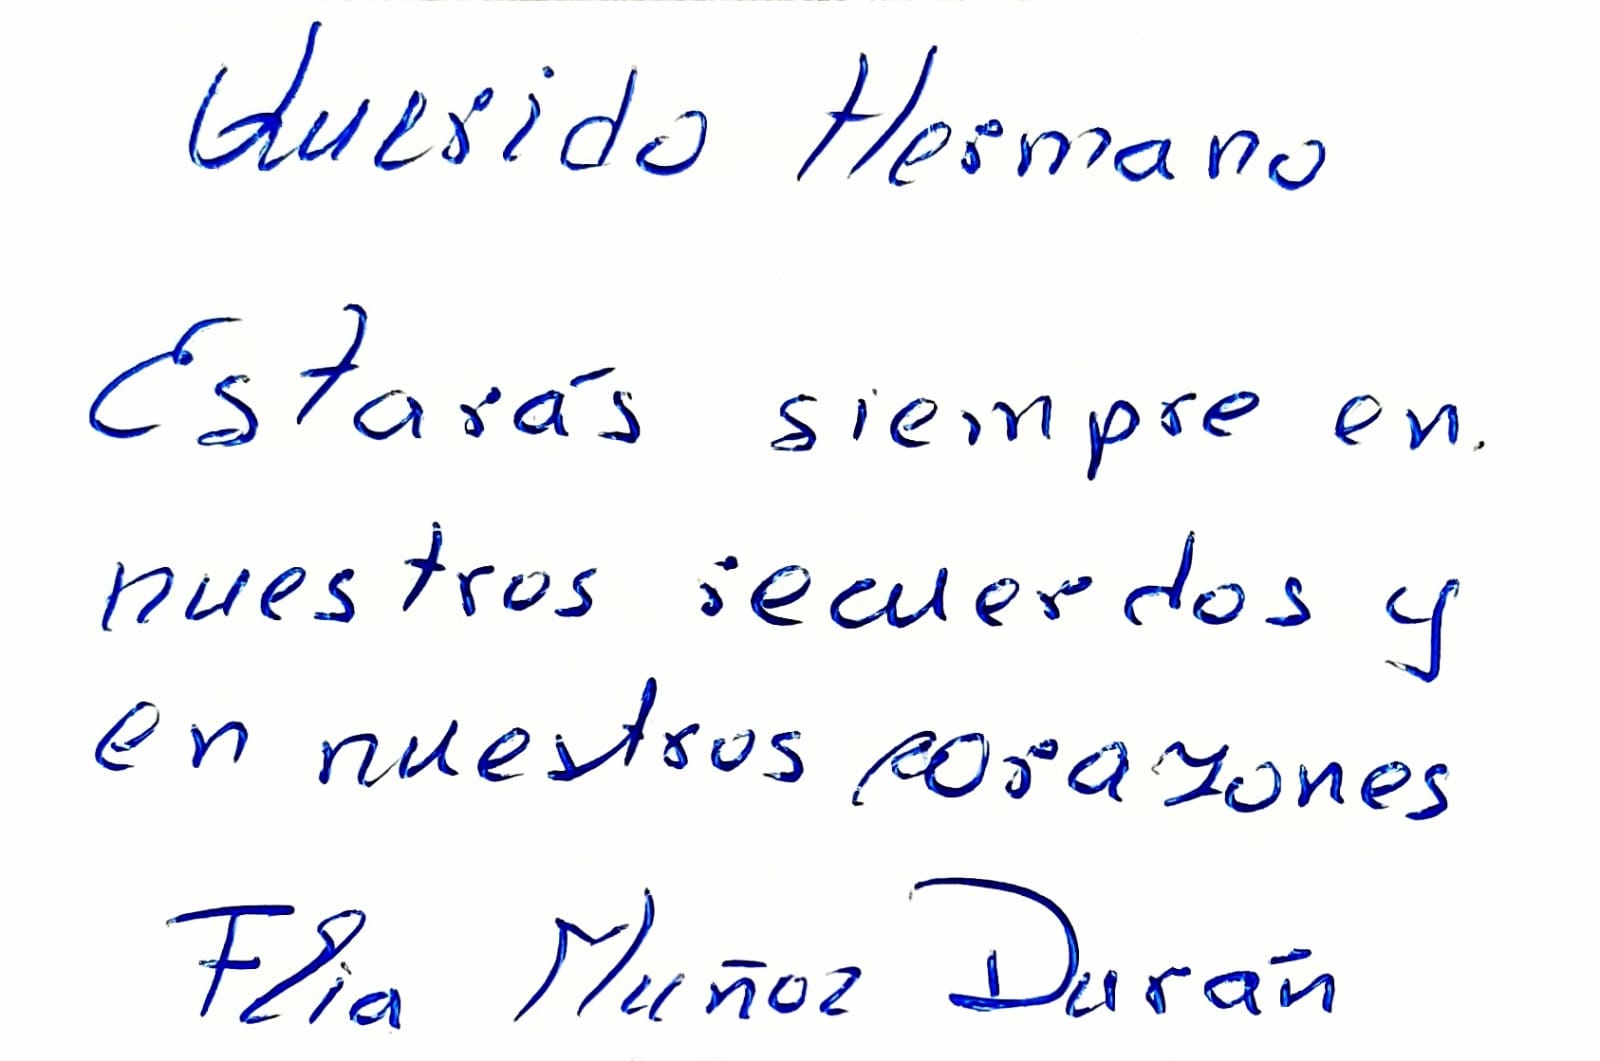 Querido Hermano
Estarás siempre en
nuestros recuerdos y
en nuestros corazones
Flia Muñoz Durán